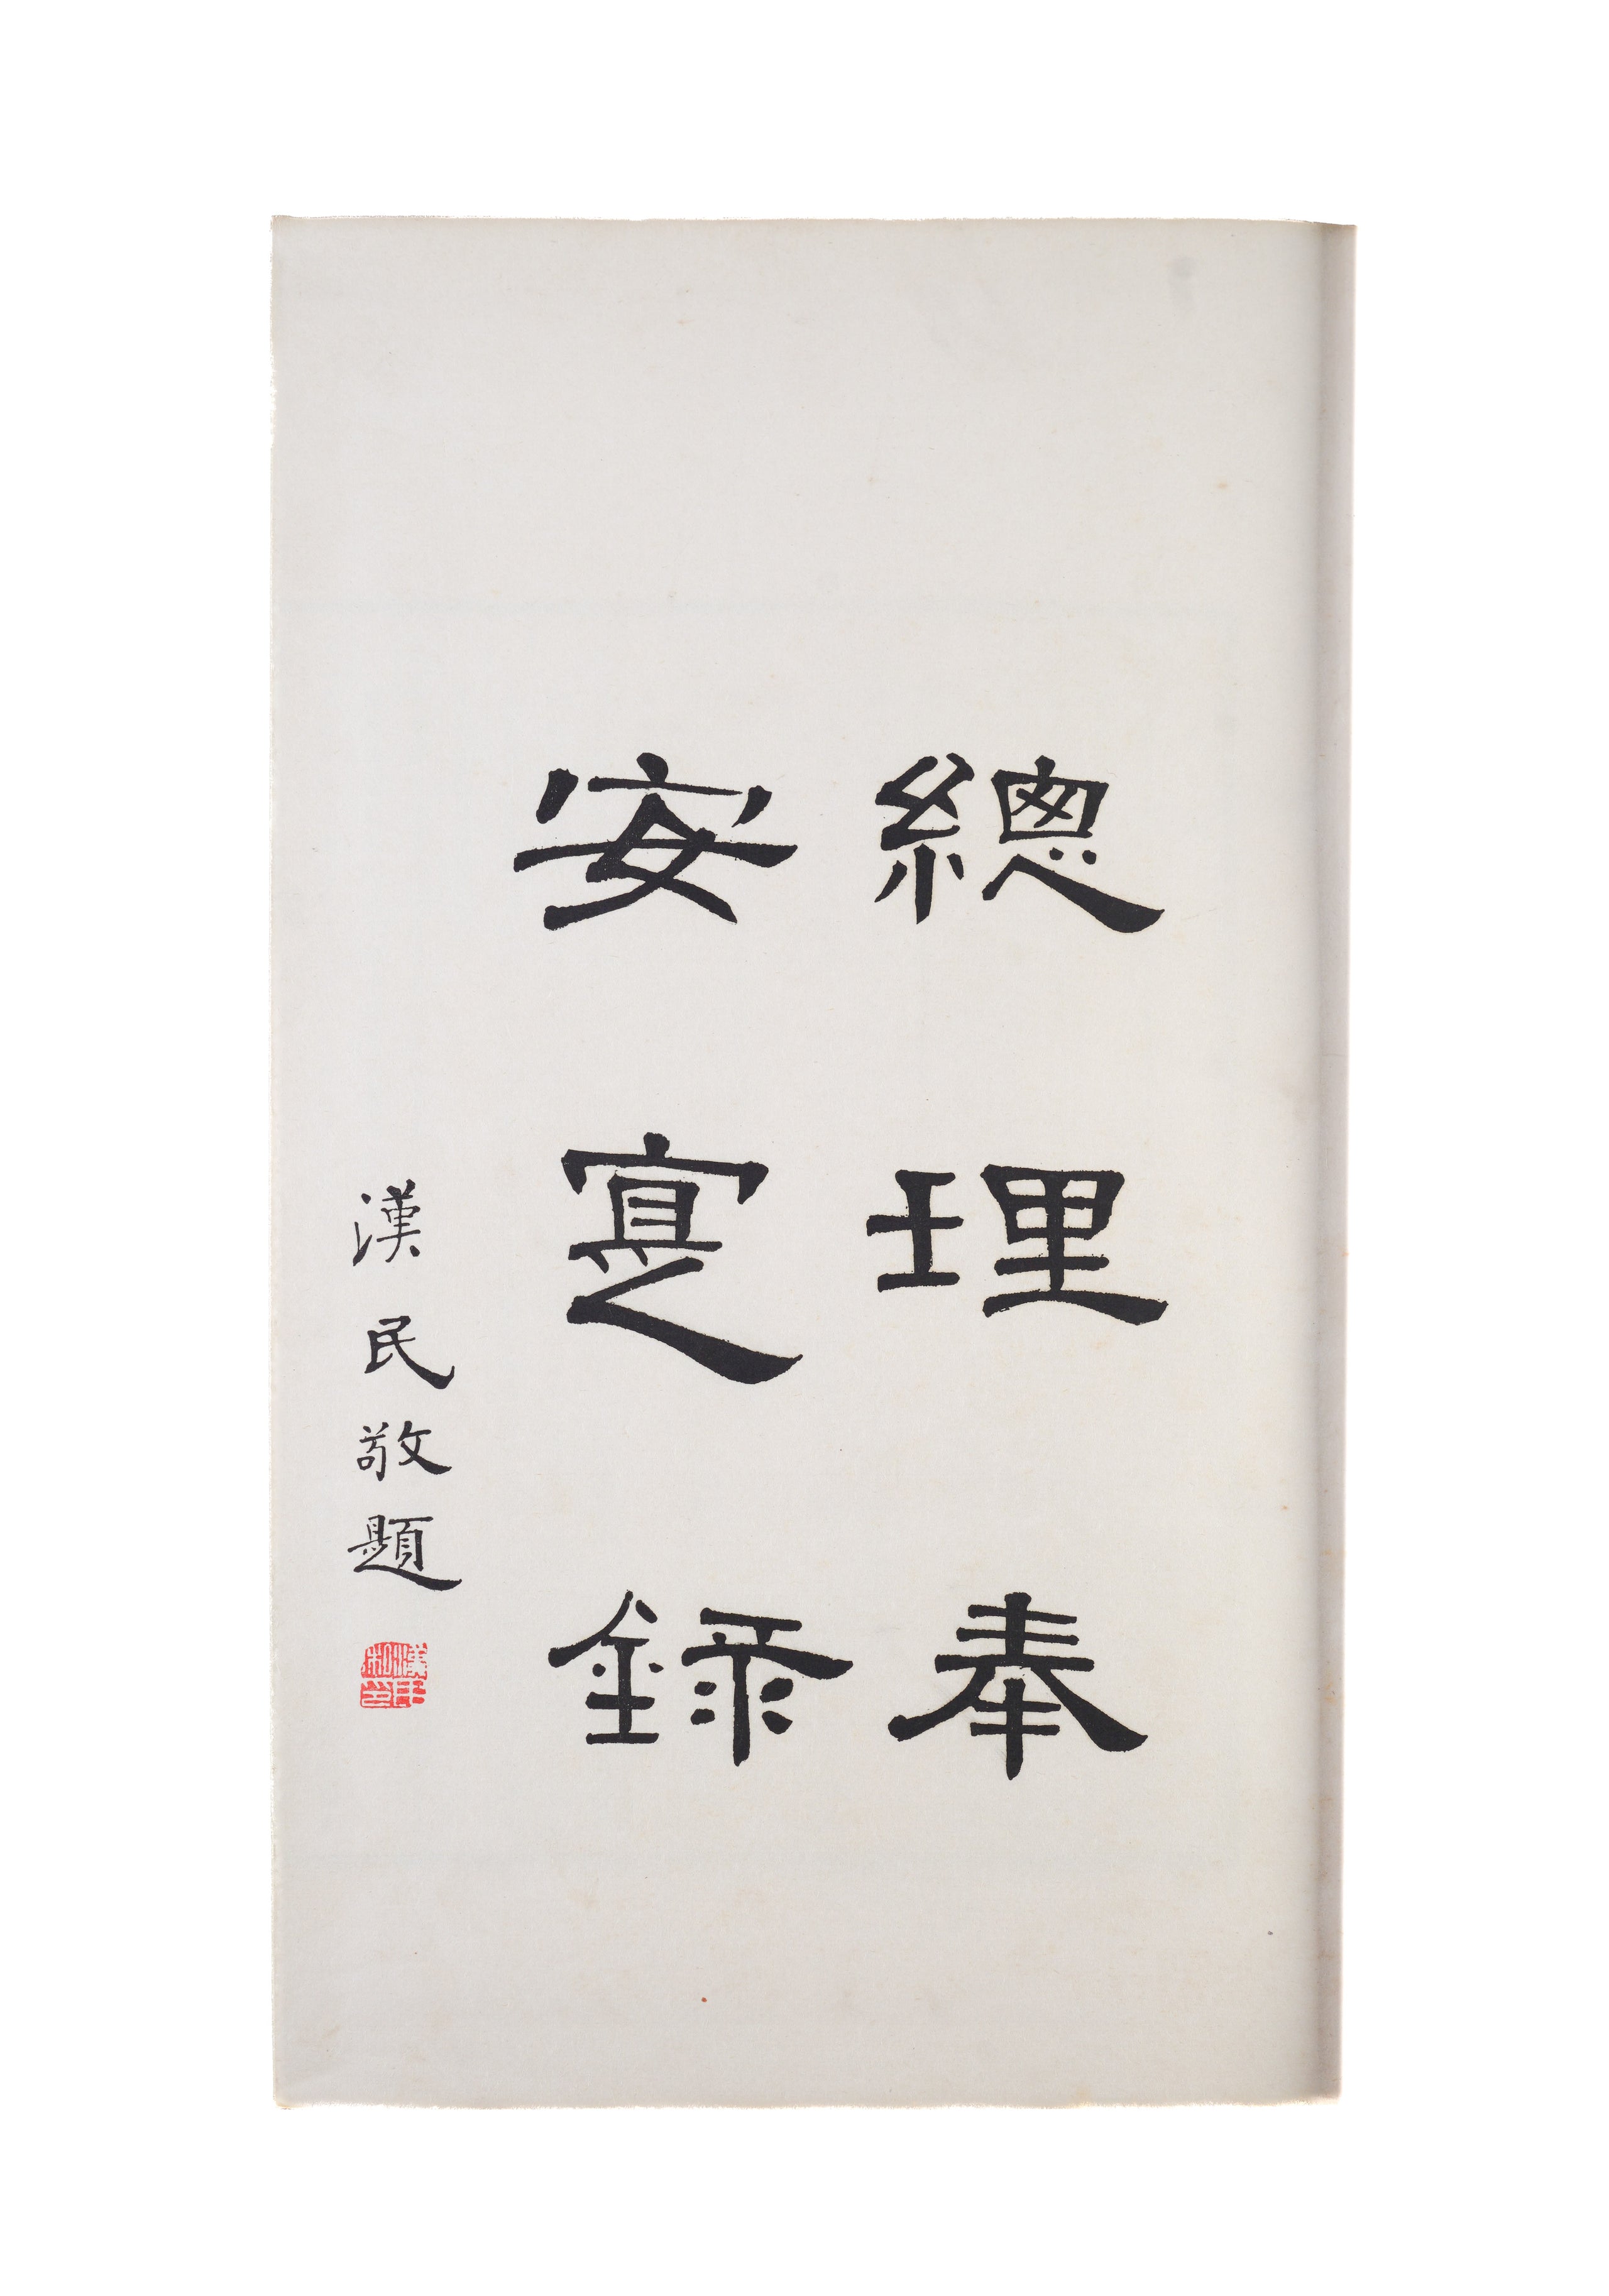 總理奉
安寔録
漢民敬題